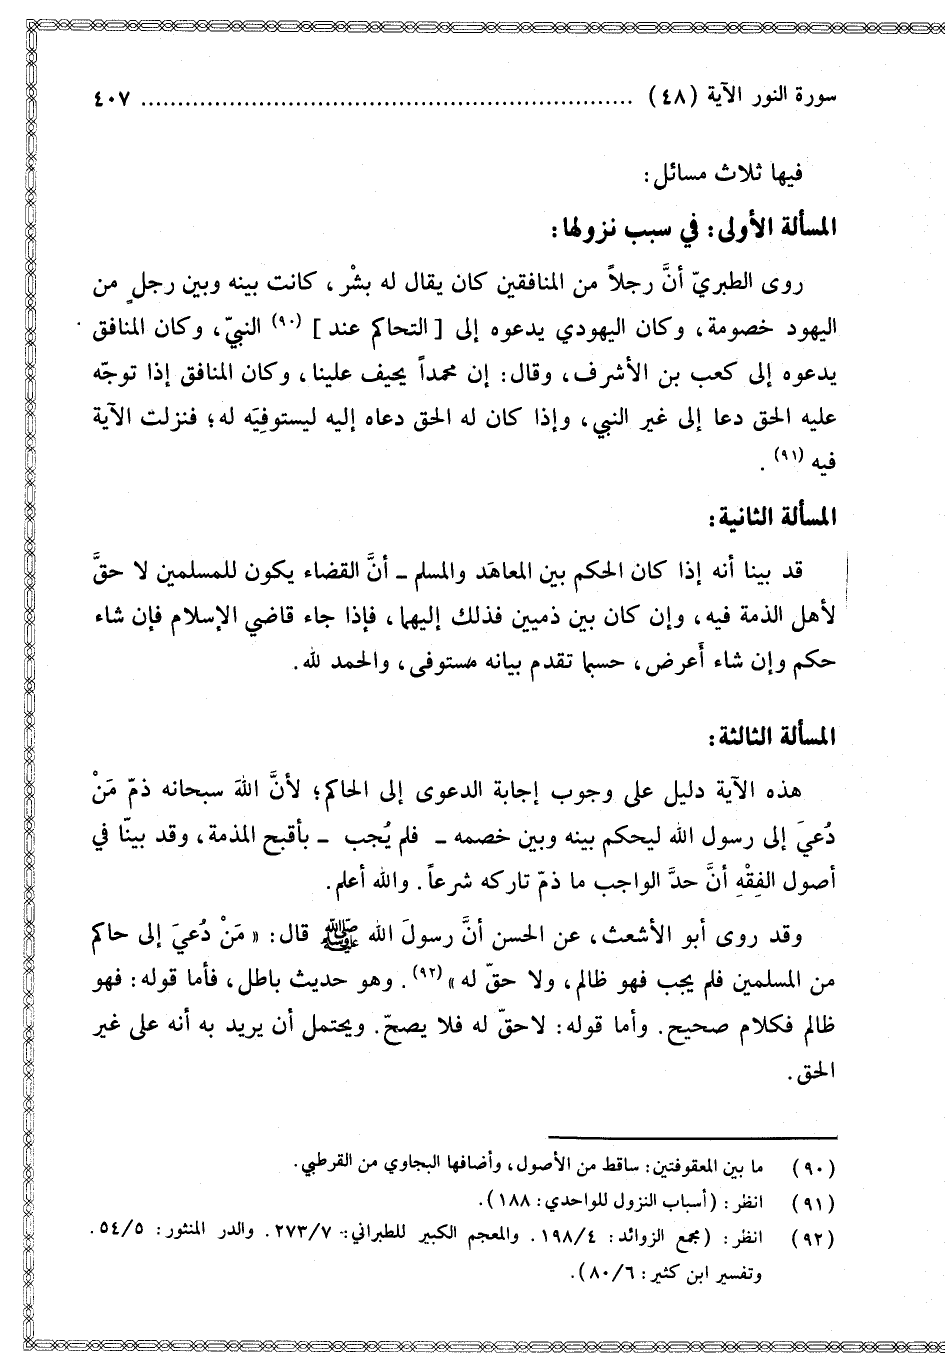 سورة النور الآية (٤٨) ................................................................ ٤٠٧
فيها ثلاث مسائل:
المسألة الأولى: في سبب نزولها:
روى الطبريّ أنَّ رجلاً من المنافقين كان يقال له بشْر، كانت بينه وبين رجلٍ من
اليهود خصومة، وكان اليهودي يدعوه إلى [ التحاكم عند ] (٩٠) النبيّ، وكان المنافق
يدعوه إلى كعب بن الأشرف، وقال: إن محمداً يحيف علينا، وكان المنافق إذا توجّه
عليه الحق دعا إلى غير النبي، وإذا كان له الحق دعاه إليه ليستوفِيَه له؛ فنزلت الآية
فيه (٩١) .
المسألة الثانية:
قد بينا أنه إذا كان الحكم بين المعاهَد والمسلم ـ أنَّ القضاء يكون للمسلمين لا حقَّ
لأهل الذمة فيه، وإن كان بين ذميين فذلك إليهما، فإذا جاء قاضي الإسلام فإن شاء
حكم وإن شاء أَعرض، حسبما تقدم بيانه مستوفى، والحمد لله.
المسألة الثالثة:
هذه الآية دليل على وجوب إجابة الدعوى إلى الحاكم؛ لأنَّ اللهَ سبحانه ذمّ مَنْ
دُعيَ إلى رسول الله ليحكم بينه وبين خصمه ـ فلم يُجب ـ بأقبح المذمة، وقد بينّا في
أصول الفِقْهِ أنَّ حدَّ الواجب ما ذمّ تاركه شرعاً. والله أعلم.
وقد روى أبو الأشعث، عن الحسن أنَّ رسولَ الله ﷺ قال: « مَنْ دُعيَ إلى حاكم
من المسلمين فلم يجب فهو ظالم، ولا حقّ له » (٩٢) . وهو حديث باطل، فأما قوله: فهو
ظالم فكلام صحيح. وأما قوله: لاحقّ له فلا يصحّ. ويحتمل أن يريد به أنه على غير
الحق.
(٩٠) ما بين المعقوفتين: ساقط من الأصول، وأضافها البجاوي من القرطبي.
(٩١) انظر: (أسباب النزول للواحدي: ١٨٨).
(٩٢) انظر: (مجمع الزوائد: ١٩٨/٤. والمعجم الكبير للطبراني: ٢٧٣/٧. والدر المنثور: ٥٤/٥.
وتفسير ابن كثير: ٨٠/٦).